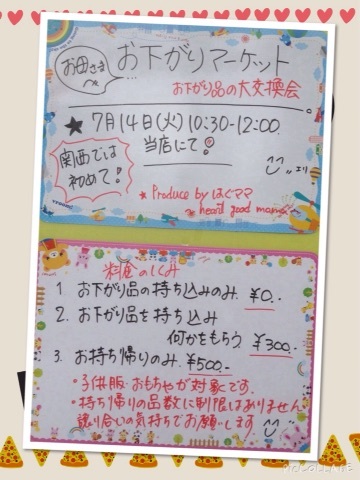 お母さま
お下がりマーケット
お下がり品の大交換会
★7月14日(火)10:30-12:00
当店にて!
関西では
初めて!
★Produce by はぐママ
heart good mama
料金のしくみ
1 お下がり品の持ち込みのみ ¥0.-
2. お下がり品を持ち込み
何かをもらう ¥300.-
3. お持ち帰りのみ ¥500.-
・子供服・おもちゃが対象です。
・持ち帰りの品数に制限はありません
譲り合いの気持ちでお願いします